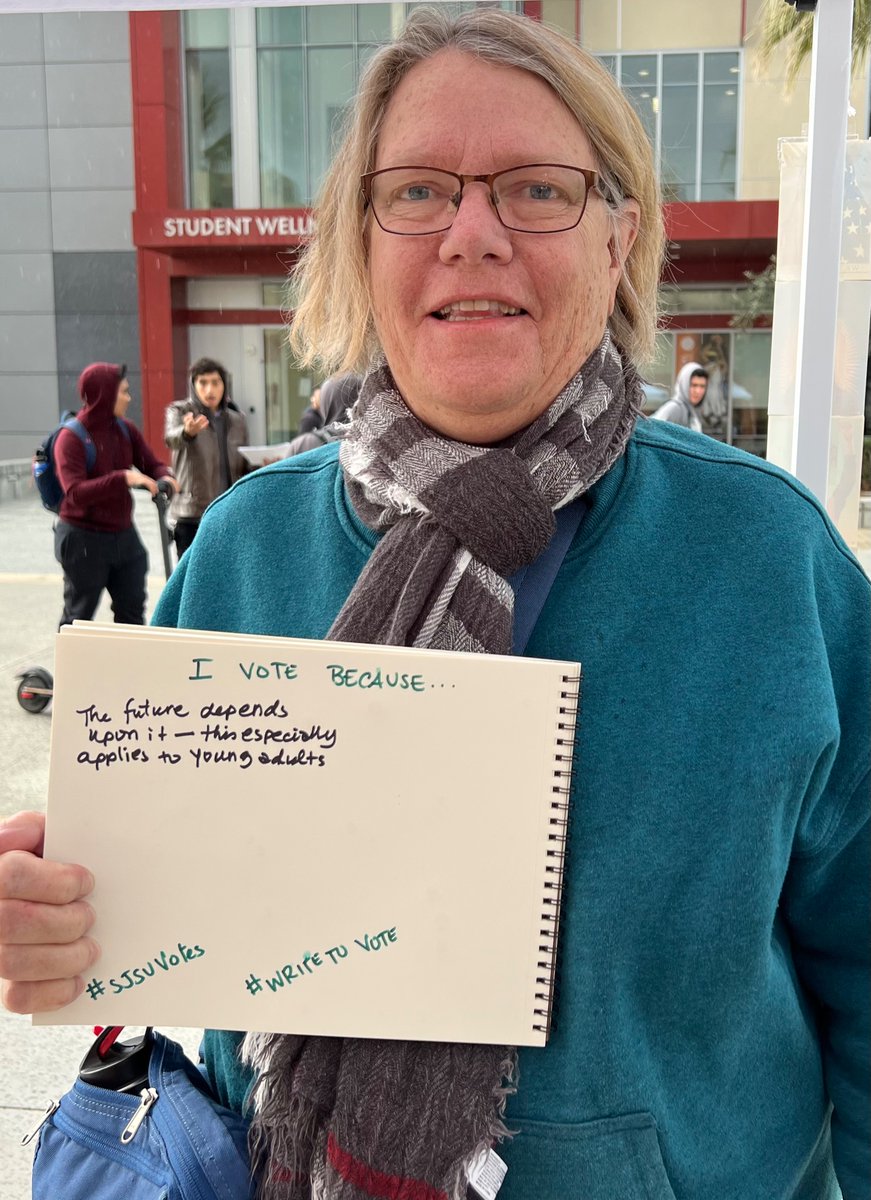 STUDENT WELLN
I VOTE BECAUSE...
The future depends
upon it — this especially
applies to young adults
#SJSUVotes
#WRITE TO VOTE